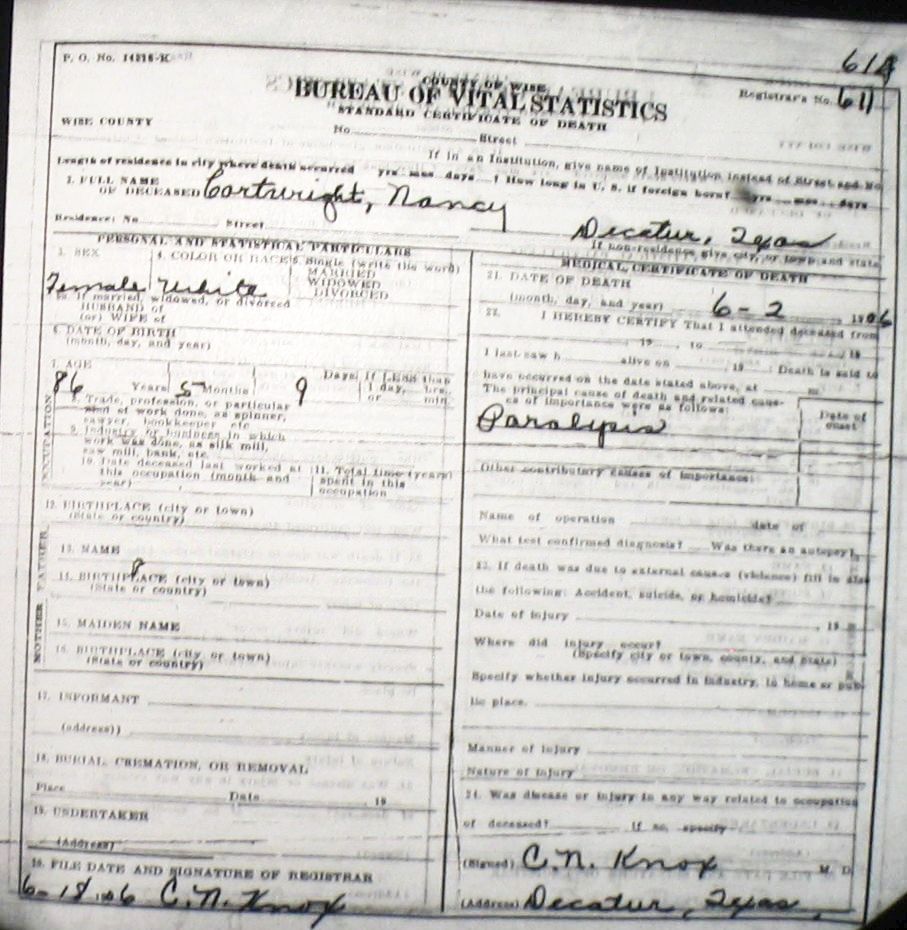 614
P. O. No. 14818-K
COUNTY OF WISE
BUREAU OF VITAL STATISTICS
Registrar's No. 611
STANDARD CERTIFICATE OF DEATH
WISE COUNTY
No. Street
If in an Institution, give name of Institution instead of Street and No.
Length of residence in city where death occurred yrs. mos. days. How long in U. S. if foreign born? yrs. mos. days
2. FULL NAME
OF DECEASED Cartwright, Nancy
Residence: No. Street Decatur, Texas
If non-residence give city, or town and state
PERSONAL AND STATISTICAL PARTICULARS
3. SEX 4. COLOR OR RACE 5. Single (write the word)
MARRIED
WIDOWED
DIVORCED
Female White
5a. If married, widowed, or divorced
HUSBAND of
(or) WIFE of
6. DATE OF BIRTH
(month, day, and year)
7. AGE
86 Years 5 Months 9 Days If Less than
1 day, hrs.
or min.
OCCUPATION
8. Trade, profession, or particular
kind of work done, as spinner,
sawyer, bookkeeper etc
9. Industry or business in which
work was done, as silk mill,
saw mill, bank, etc.
10. Date deceased last worked at
this occupation (month and
year)
11. Total time (years)
spent in this
occupation
12. BIRTHPLACE (city or town)
(State or country)
FATHER
13. NAME
14. BIRTHPLACE (city or town)
(State or country)
MOTHER
15. MAIDEN NAME
16. BIRTHPLACE (city, or town)
(State or country)
17. INFORMANT
(address))
18. BURIAL, CREMATION, OR REMOVAL
Place Date , 19
19. UNDERTAKER
(Address)
20. FILE DATE AND SIGNATURE OF REGISTRAR
6-18-06 C. N. Knox
MEDICAL CERTIFICATE OF DEATH
21. DATE OF DEATH
(month, day, and year) 6-2 1906
22. I HEREBY CERTIFY That I attended deceased from
, 19 , to , 19
I last saw h alive on , 19 . Death is said to
have occurred on the date stated above, at m.
The principal cause of death and related cause-
es of importance were as follows:
Date of
onset
Paralysis
Other contributory causes of importance:
Name of operation date of
What test confirmed diagnosis? Was there an autopsy?
23. If death was due to external causes (violence) fill in also
the following: Accident, suicide, or homicide?
Date of injury , 19
Where did injury occur?
(Specify city or town, county, and State)
Specify whether injury occurred in industry, in home or pub-
lic place.
Manner of injury
Nature of injury
24. Was disease or injury in any way related to occupation
of deceased? If so, specify
(Signed) C. N. Knox M. D.
(Address) Decatur, Texas